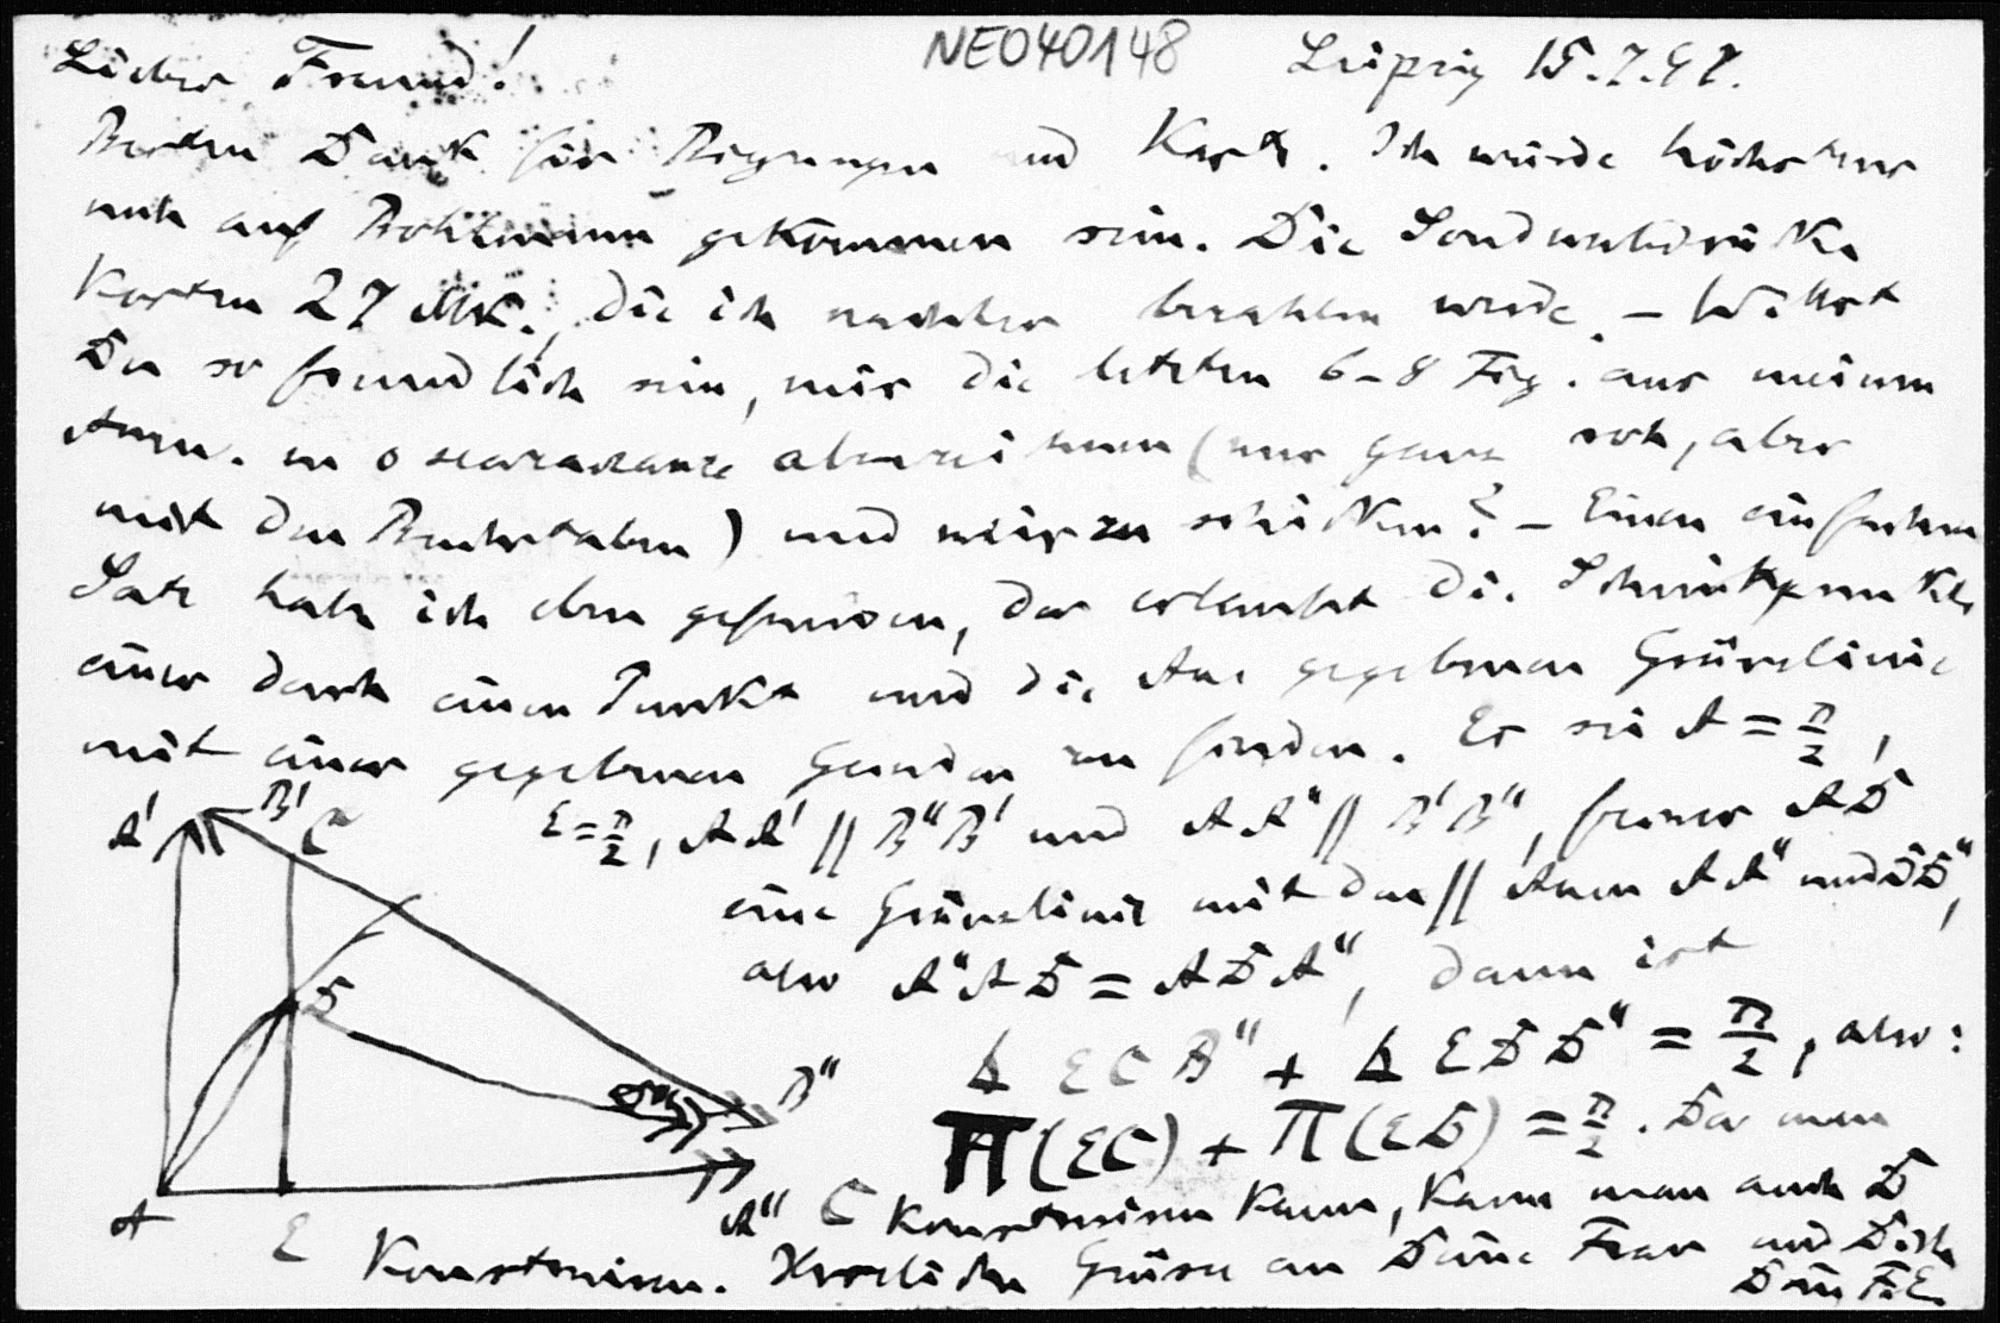 NEO40148
Lieber Freund! Leipzig 15.7.97.
Besten Dank für und Karte. Ich würde höchstens
noch auf gekommen sein. Die Sonderabdrücke
kosten 27 Mk., die ich nachher bezahlen werde. – Willst
Du so freundlich sein, mir die letzten 6–8 Fig. aus meinem
abzuzeichnen (nur ganz roh, aber
mit den Buchstaben) und mir zu schicken? – Einen einfachen
Satz habe ich eben gefunden, der erlaubt die Schnittpunkte
einer durch einen Punkt und die Axe gegebenen Gränzlinie
mit einer gegebenen Geraden zu finden. Es sei A = π/2,
E = π/2, AA' // B"B' und AA" // B'B", ferner AD
eine Gränzlinie mit den // Axen AA" und DD",
also A"AD = ADA", dann ist
∡ ECB" + ∡ EDD" = π/2, also:
Π(EC) + Π(ED) = π/2. Da man
C konstruiren kann, kann man auch D
konstruiren. Herzliche Grüsse an Deine Frau und Dich
Dein F.E.
A' B' C
D
D" B"
A E A"